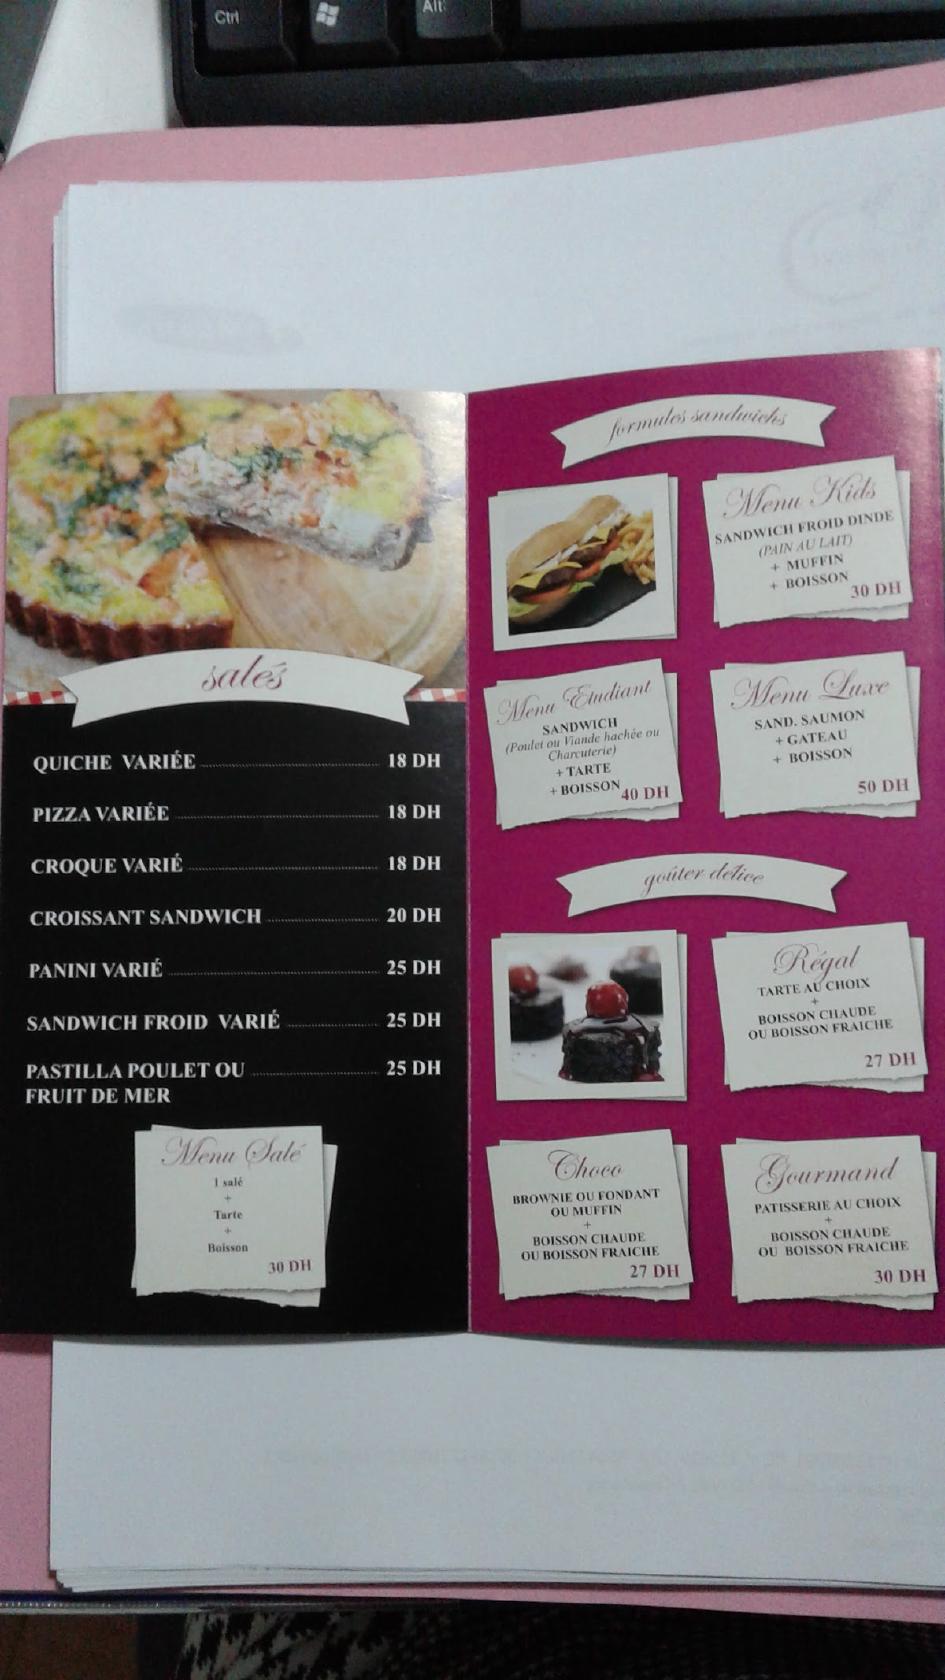 Ctrl
Alt
salés
QUICHE VARIÉE 18 DH
PIZZA VARIÉE 18 DH
CROQUE VARIÉ 18 DH
CROISSANT SANDWICH 20 DH
PANINI VARIÉ 25 DH
SANDWICH FROID VARIÉ 25 DH
PASTILLA POULET OU 25 DH
FRUIT DE MER
Menu Salé
1 salé
+
Tarte
+
Boisson
30 DH
formules sandwichs
Menu Kids
SANDWICH FROID DINDE
(PAIN AU LAIT)
+ MUFFIN
+ BOISSON
30 DH
Menu Etudiant
SANDWICH
(Poulet ou Viande hachée ou
Charcuterie)
+ TARTE
+ BOISSON
40 DH
Menu Luxe
SAND. SAUMON
+ GATEAU
+ BOISSON
50 DH
goûter délice
Régal
TARTE AU CHOIX
+
BOISSON CHAUDE
OU BOISSON FRAICHE
27 DH
Choco
BROWNIE OU FONDANT
OU MUFFIN
+
BOISSON CHAUDE
OU BOISSON FRAICHE
27 DH
Gourmand
PATISSERIE AU CHOIX
+
BOISSON CHAUDE
OU BOISSON FRAICHE
30 DH